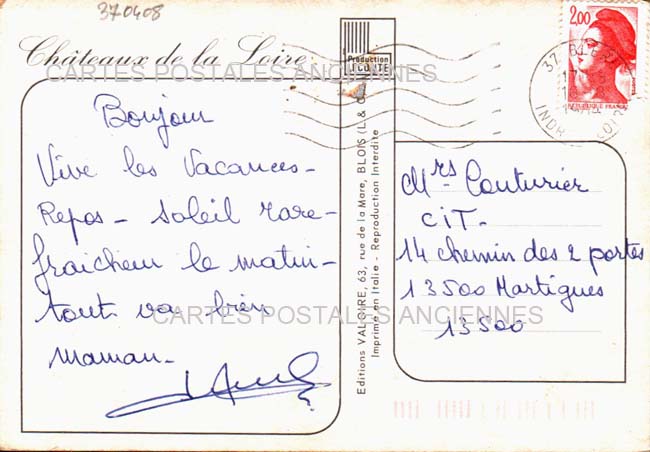 370408
Châteaux de la Loire
CARTES POSTALES ANCIENNES
Production
Bonjour
Vive les Vacances-
Repos - soleil rare-
fraicheur le matin-
tout va bien
CARTES POSTALES ANCIENNES
maman-
Editions VALOIRE, 63, rue de la Mare, BLOIS (L. & C.)
Imprimé en Italie - Reproduction Interdite
2,00
REPUBLIQUE FRANCAISE
37
INDRE
LOIRE
Mrs Couturier
CIT-
14 chemin des 2 portes
13500 Martigues
13500